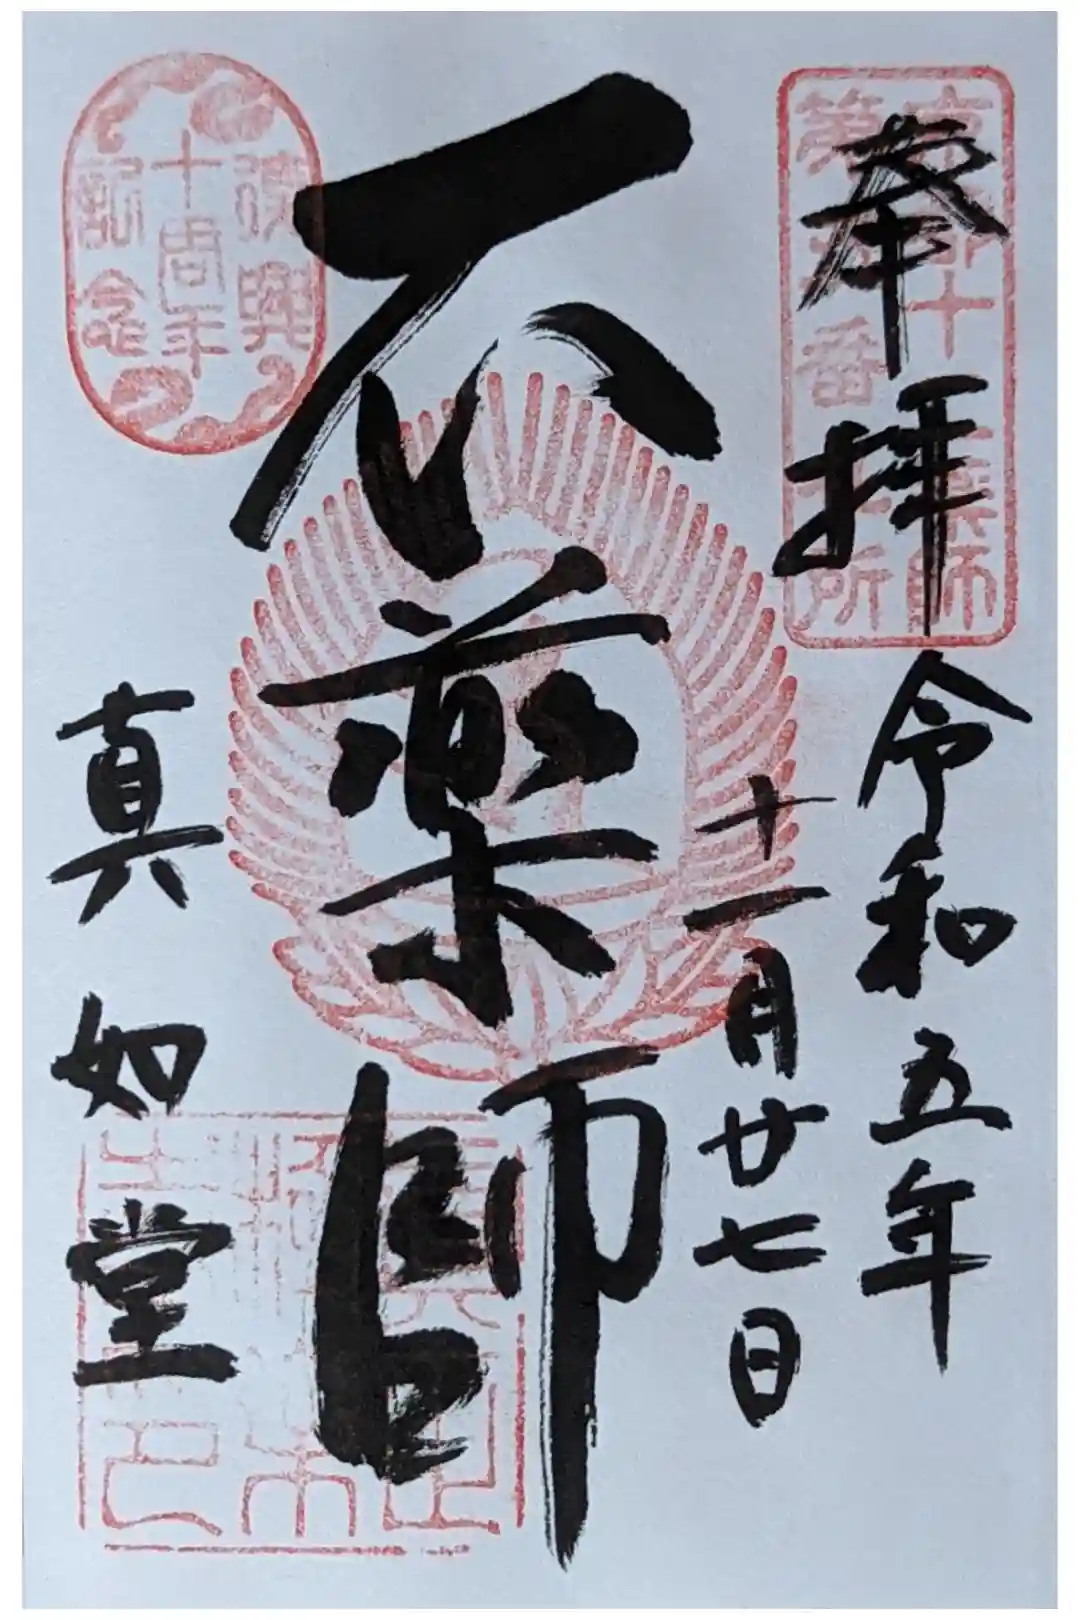 奉拝
令和五年
十一月廿七日
石薬師
真如堂
京都十二薬師
第 番札所
復興
十周年
記念